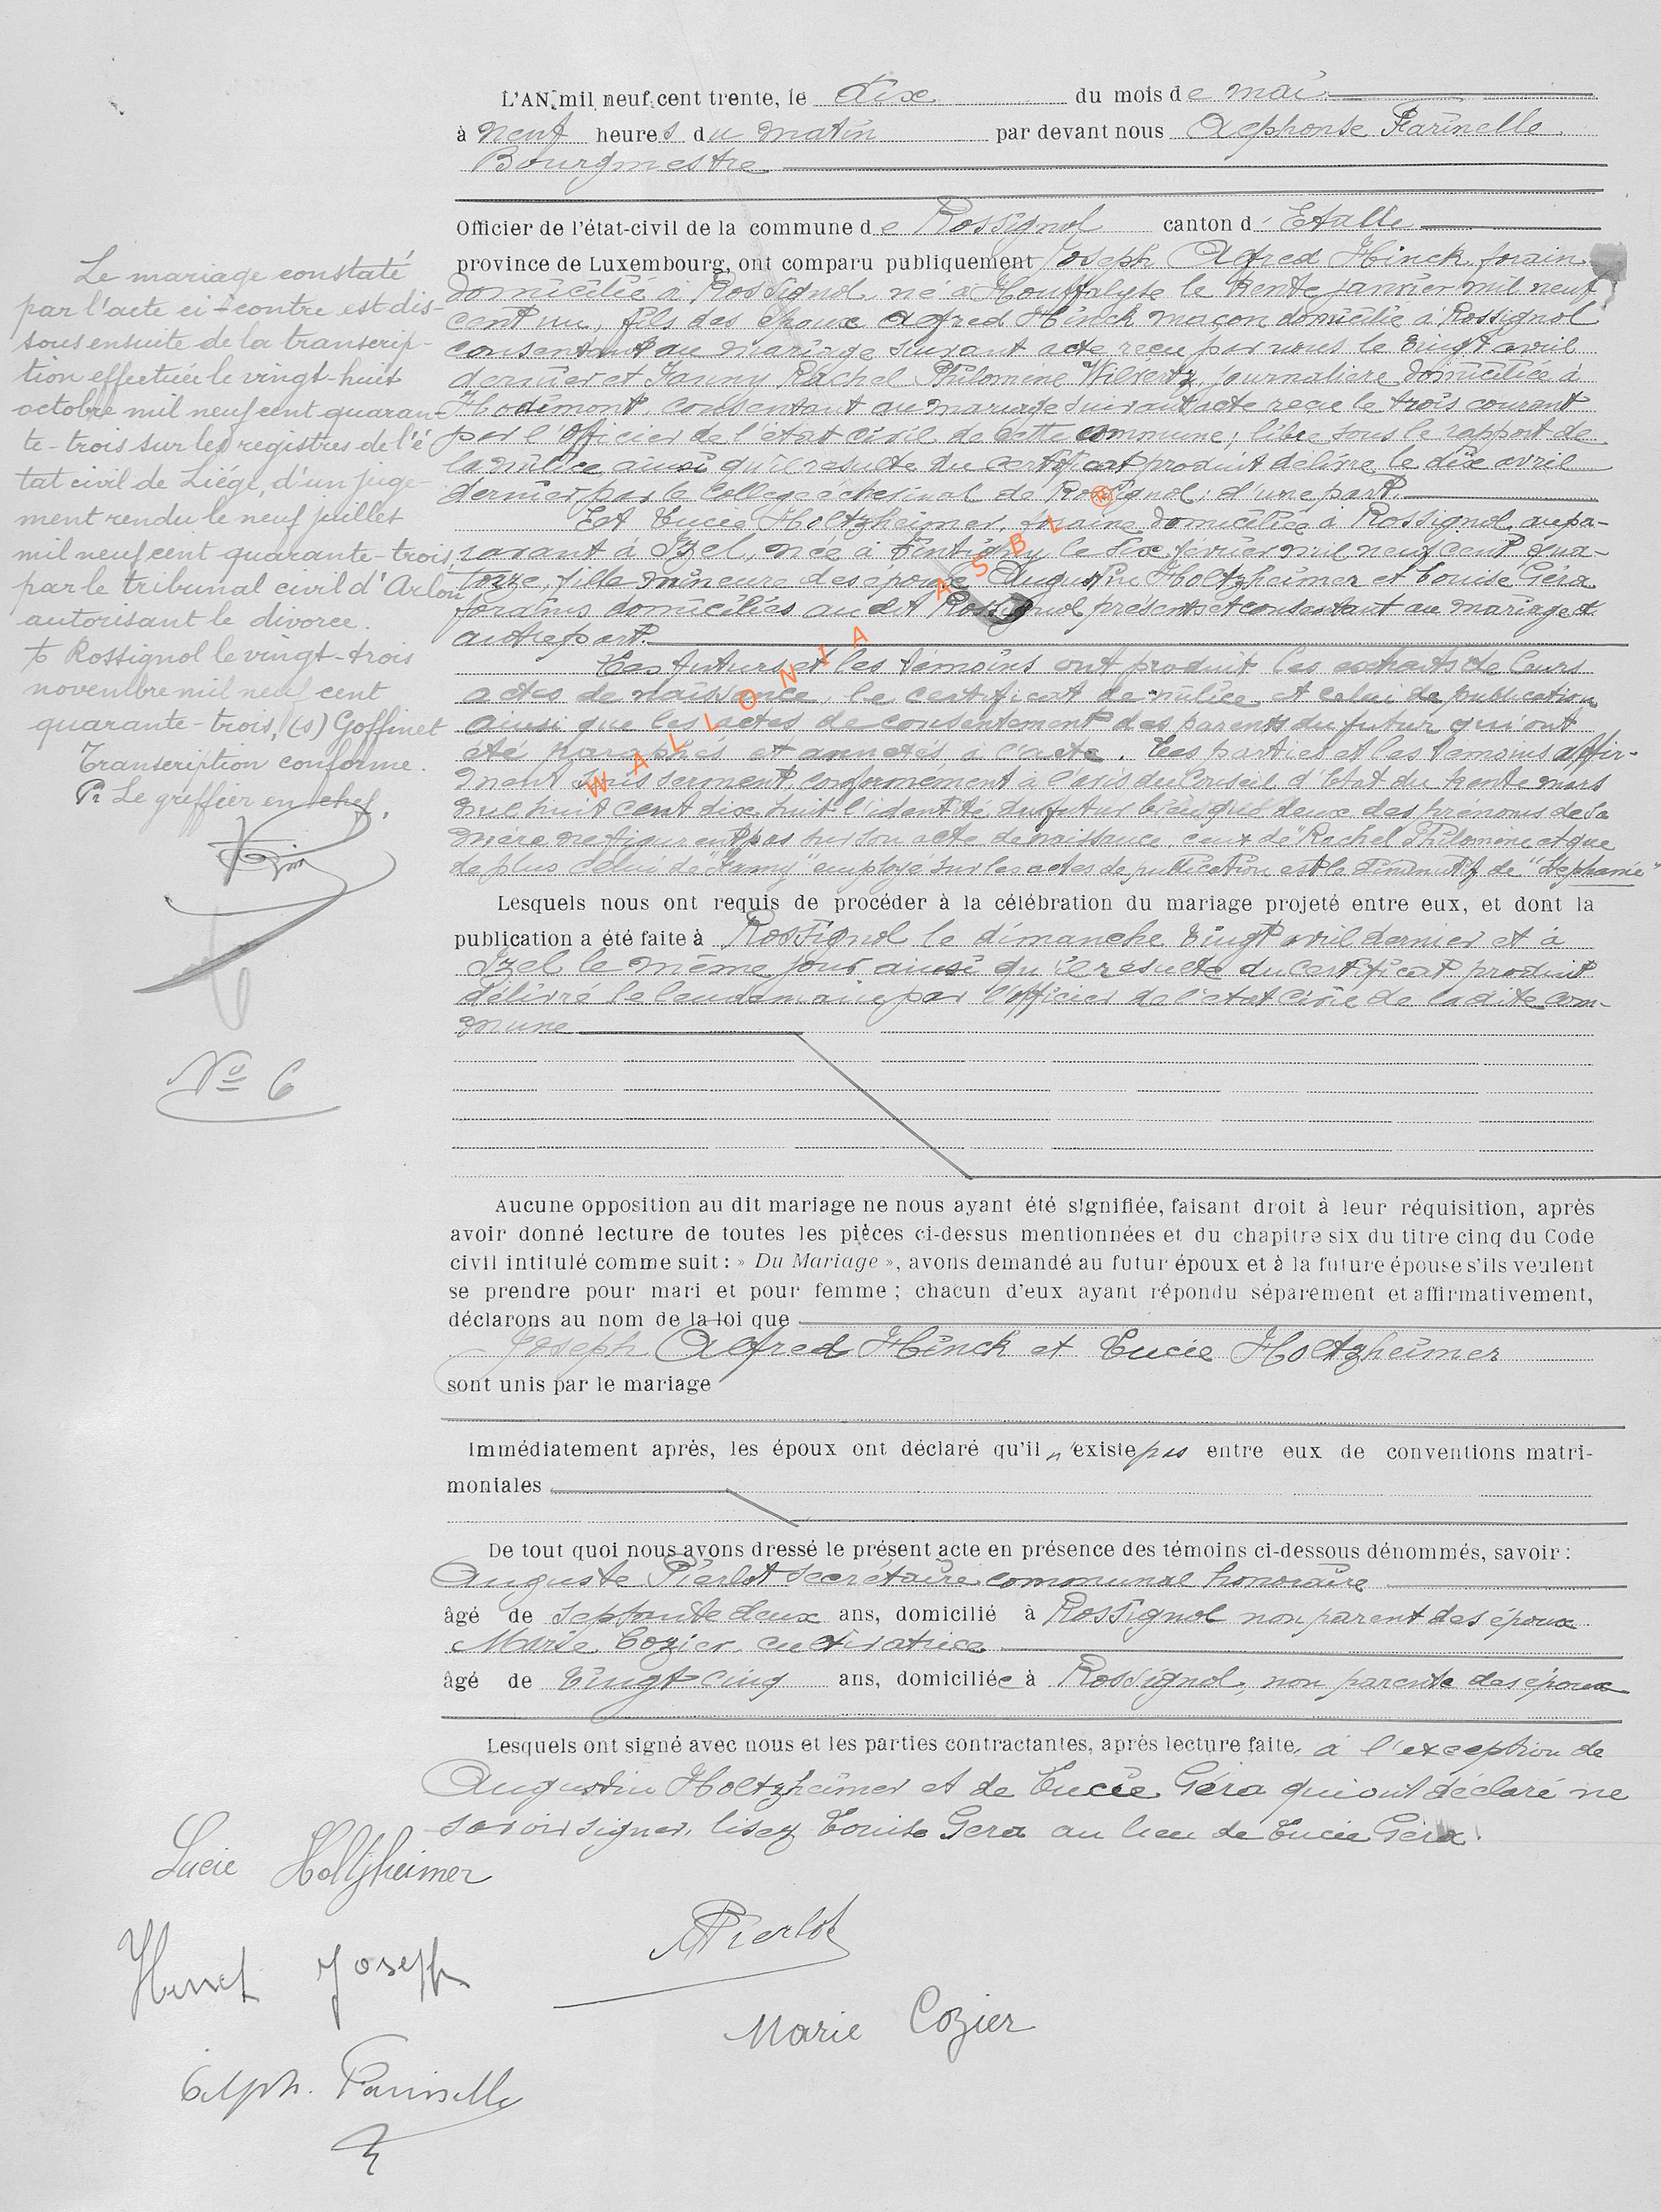 L'AN mil neuf cent trente, le dix du mois de mai
à neuf heures du matin par devant nous Alphonse Farinelle
Bourgmestre
Officier de l'état-civil de la commune de Rossignol canton d'Etalle
province de Luxembourg, ont comparu publiquement Joseph Alfred Hinck, forain
domicilié à Rossignol, né à Houffalize le trente janvier mil neuf
cent un, fils des époux Alfred Hinck maçon domicilié à Rossignol
consentant au mariage suivant acte reçu par nous le vingt avril
dernier et Fanny Rachel Philomène Wilvertz, journalière domiciliée à
Hodimont, consentant au mariage suivant acte reçu le trois courant
par l'officier de l'état civil de cette commune; libre sous le rapport de
la milice ainsi qu'il resulte du certificat produit délivré le dix avril
dernier par le Collège échevinal de Rossignol; d'une part.
Et Lucie Holtzheimer, foraine domiciliée à Rossignol, aupa-
ravant à Izel, née à Tintigny le dix février mil neuf cent qua-
torze, fille mineure des époux Augustin Holtzheimer et Louise Géra
forains domiciliés au dit Rossignol présents et consentant au mariage d'
autre part.
Les futurs et les témoins ont produit les extraits de leurs
actes de naissance, le certificat de milice et celui de publication
ainsi que les actes de consentement des parents du futur qui ont
été paraphés et annexés à l'acte. Les parties et les témoins affir-
ment sous serment, conformément à l'avis du Conseil d'Etat du trente mars
mil huit cent dix huit l'identité du futur bien que deux des prénoms de sa
mère ne figurent pas sur son acte de naissance, ceux de "Rachel Philomène et que
de plus celui de "Fanny" employé sur les actes de publication est le diminutif de "Stephanie"
Lesquels nous ont requis de procéder à la célébration du mariage projeté entre eux, et dont la
publication a été faite à Rossignol le dimanche vingt avril dernier et à
Izel le même jour ainsi qu'il résulte du certificat produit
délivré le lendemain par l'officier de l'état civil de la dite com-
mune
Aucune opposition au dit mariage ne nous ayant été signifiée, faisant droit à leur réquisition, après
avoir donné lecture de toutes les pièces ci-dessus mentionnées et du chapitre six du titre cinq du Code
civil intitulé comme suit : » Du Mariage », avons demandé au futur époux et à la future épouse s'ils veulent
se prendre pour mari et pour femme ; chacun d'eux ayant répondu séparement et affirmativement,
déclarons au nom de la loi que
Joseph Alfred Hinck et Lucie Holtzheimer
sont unis par le mariage
Immédiatement après, les époux ont déclaré qu'il n'existe pas entre eux de conventions matri-
moniales
De tout quoi nous avons dressé le présent acte en présence des témoins ci-dessous dénommés, savoir :
Auguste Pierlot secrétaire communal honoraire
âgé de septante deux ans, domicilié à Rossignol non parent des époux
Marie Cozier, cultivatrice
âgé de vingt cinq ans, domiciliée à Rossignol, non parente des époux
Lesquels ont signé avec nous et les parties contractantes, après lecture faite, à l'exception de
Augustin Holtzheimer et de Lucie Géra qui ont déclaré ne
savoir signer, lisez Louise Gera au lieu de Lucie Gera.
Lucie Holtzheimer
Hinck Joseph
APierlot
Marie Cozier
Alph. Farinelle
Le mariage constaté
par l'acte ci-contre est dis-
sous ensuite de la transcrip-
tion effectuée le vingt-huit
octobre mil neuf cent quaran-
te-trois sur les registres de l'é
tat civil de Liége, d'un juge-
ment rendu le neuf juillet
mil neuf cent quarante-trois,
par le tribunal civil d'Arlon
autorisant le divorce.
Rossignol le vingt-trois
novembre mil neuf cent
quarante-trois, (s) Goffinet
Transcription conforme.
Pr Le greffier en chef,
No 6
WALLONIA ASBL ®